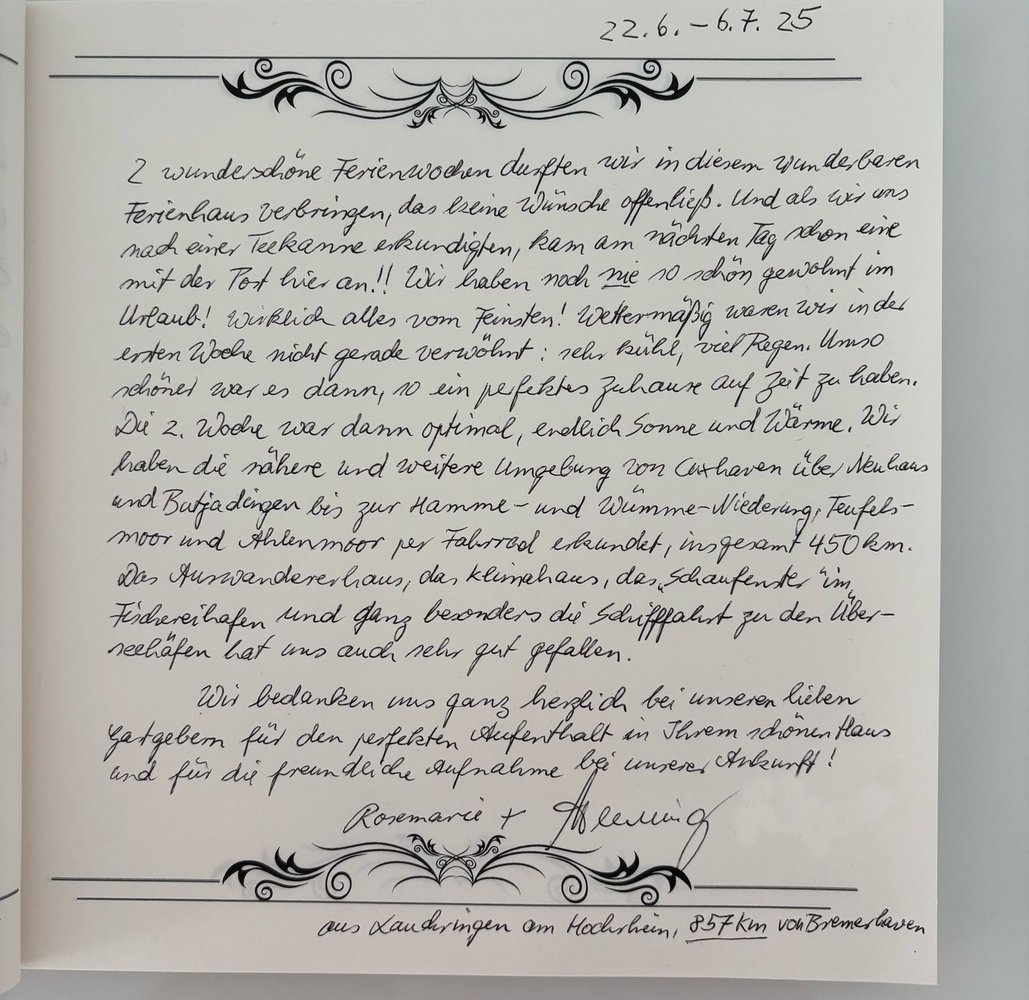 22.6. – 6.7. 25
2 wunderschöne Ferienwochen durften wir in diesem wunderbaren
Ferienhaus verbringen, das keine Wünsche offenließ. Und als wir uns
nach einer Teekanne erkundigten, kam am nächsten Tag schon eine
mit der Post hier an!! Wir haben noch nie so schön gewohnt im
Urlaub! Wirklich alles vom Feinsten! Wettermäßig waren wir in der
ersten Woche nicht gerade verwöhnt: sehr kühl, viel Regen. Umso
schöner war es dann, so ein perfektes Zuhause auf Zeit zu haben.
Die 2. Woche war dann optimal, endlich Sonne und Wärme. Wir
haben die nähere und weitere Umgebung von Cuxhaven über Neuhaus
und Butjadingen bis zur Hamme- und Wümme-Niederung, Teufels-
moor und Ahlenmoor per Fahrrad erkundet, insgesamt 450 km.
Das Auswandererhaus, das Klimahaus, das „Schaufenster" im
Fischereihafen und ganz besonders die Schifffahrt zu den Über-
seehäfen hat uns auch sehr gut gefallen.
Wir bedanken uns ganz herzlich bei unseren lieben
Gastgebern für den perfekten Aufenthalt in Ihrem schönen Haus
und für die freundliche Aufnahme bei unserer Ankunft!
Rosemarie +
aus Lauchringen am Hochrhein, 857 km von Bremerhaven